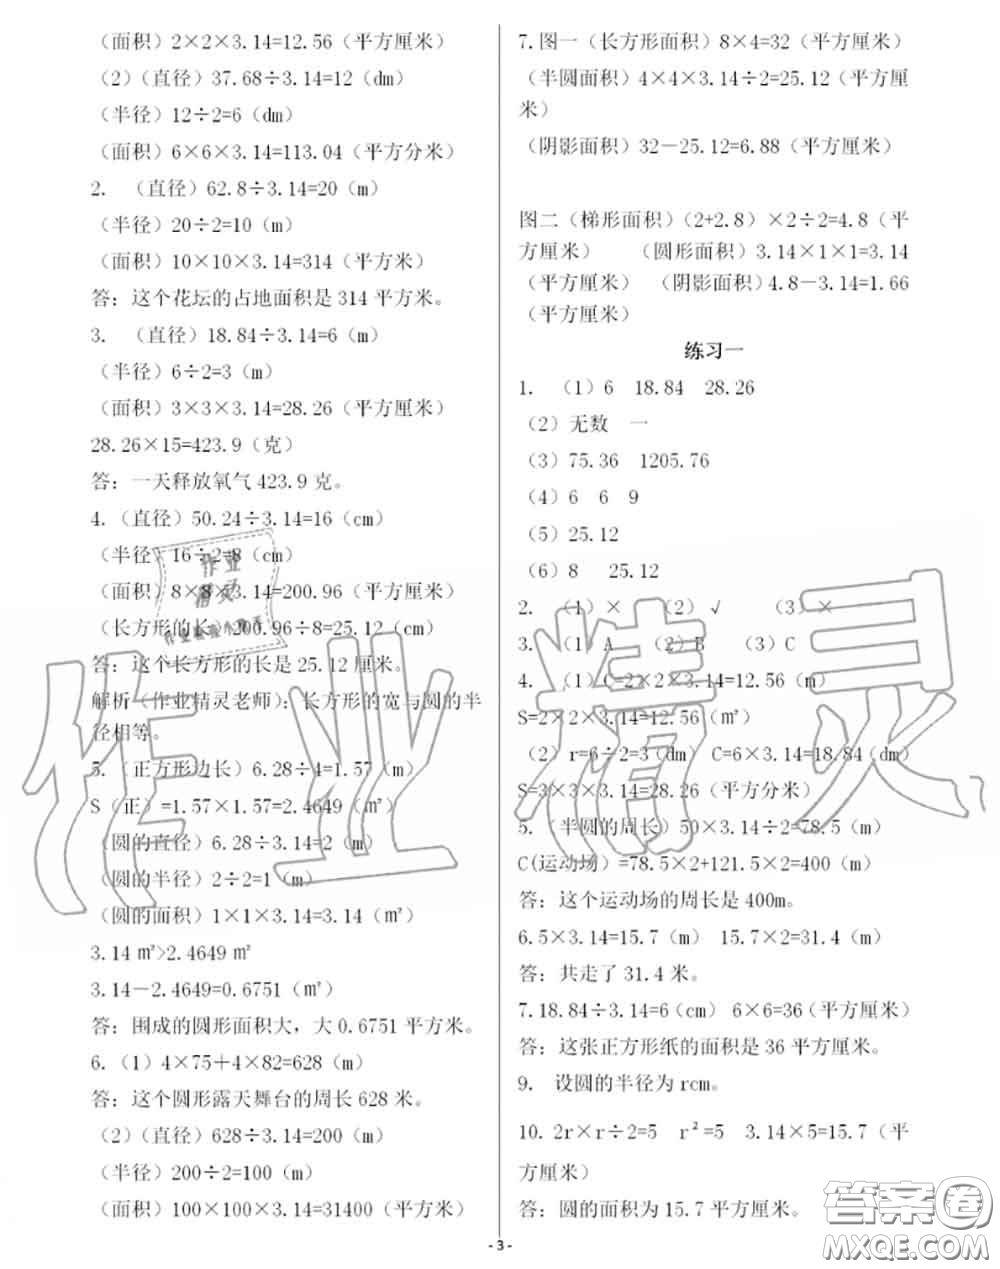 （面积）2×2×3.14=12.56（平方厘米）
（2）（直径）37.68÷3.14=12（dm）
（半径）12÷2=6（dm）
（面积）6×6×3.14=113.04（平方分米）
2. （直径）62.8÷3.14=20（m）
（半径）20÷2=10（m）
（面积）10×10×3.14=314（平方米）
答：这个花坛的占地面积是 314 平方米。
3. （直径）18.84÷3.14=6（m）
（半径）6÷2=3（m）
（面积）3×3×3.14=28.26（平方厘米）
28.26×15=423.9（克）
答：一天释放氧气 423.9 克。
4.（直径）50.24÷3.14=16（cm）
（半径）16÷2=8（cm）
（面积）8×8×3.14=200.96（平方厘米）
（长方形的长）200.96÷8=25.12（厘米）
答：这个长方形的长是 25.12 厘米。
解析（作业精灵老师）：长方形的宽与圆的半
径相等。
5. （正方形边长）6.28÷4=1.57（m）
S（正）=1.57×1.57=2.4649（㎡）
（圆的直径）6.28÷3.14=2（m）
（圆的半径）2÷2=1（m）
（圆的面积）1×1×3.14=3.14（㎡）
3.14 ㎡>2.4649 ㎡
3.14－2.4649=0.6751（㎡）
答：围成的圆形面积大，大 0.6751 平方米。
6.（1）4×75＋4×82=628（m）
答：这个圆形露天舞台的周长 628 米。
（2）（直径）628÷3.14=200（m）
（半径）200÷2=100（m）
（面积）100×100×3.14=31400（平方米）
7.图一（长方形面积）8×4=32（平方厘米）
（半圆面积）4×4×3.14÷2=25.12（平方厘
米）
（阴影面积）32－25.12=6.88（平方厘米）
图二（梯形面积）（2+2.8）×2÷2=4.8（平
方厘米） （圆形面积）3.14×1×1=3.14
（平方厘米） （阴影面积）4.8－3.14=1.66
（平方厘米）
练习一
1. （1）6 18.84 28.26
（2）无数 一
（3）75.36 1205.76
（4）6 6 9
（5）25.12
（6）8 25.12
2. （1）× （2）√ （3）×
3. （1）A （2）B （3）C
4. （1）C=2×2×3.14=12.56（m）
S=2×2×3.14=12.56（㎡）
（2）r=6÷2=3（dm） C=6×3.14=18.84（dm）
S=3×3×3.14=28.26（平方分米）
5. （半圆的周长）50×3.14÷2=78.5（m）
C(运动场）=78.5×2+121.5×2=400（m）
答：这个运动场的周长是 400m。
6.5×3.14=15.7（m） 15.7×2=31.4（m）
答：共走了 31.4 米。
7.18.84÷3.14=6（cm） 6×6=36（平方厘米）
答：这张正方形纸的面积是 36 平方厘米。
9. 设圆的半径为 rcm。
10. 2r×r÷2=5 r²=5 3.14×5=15.7（平
方厘米）
答：圆的面积为 15.7 平方厘米。
- 3 -
作业精灵
答案圈
MXQE.COM